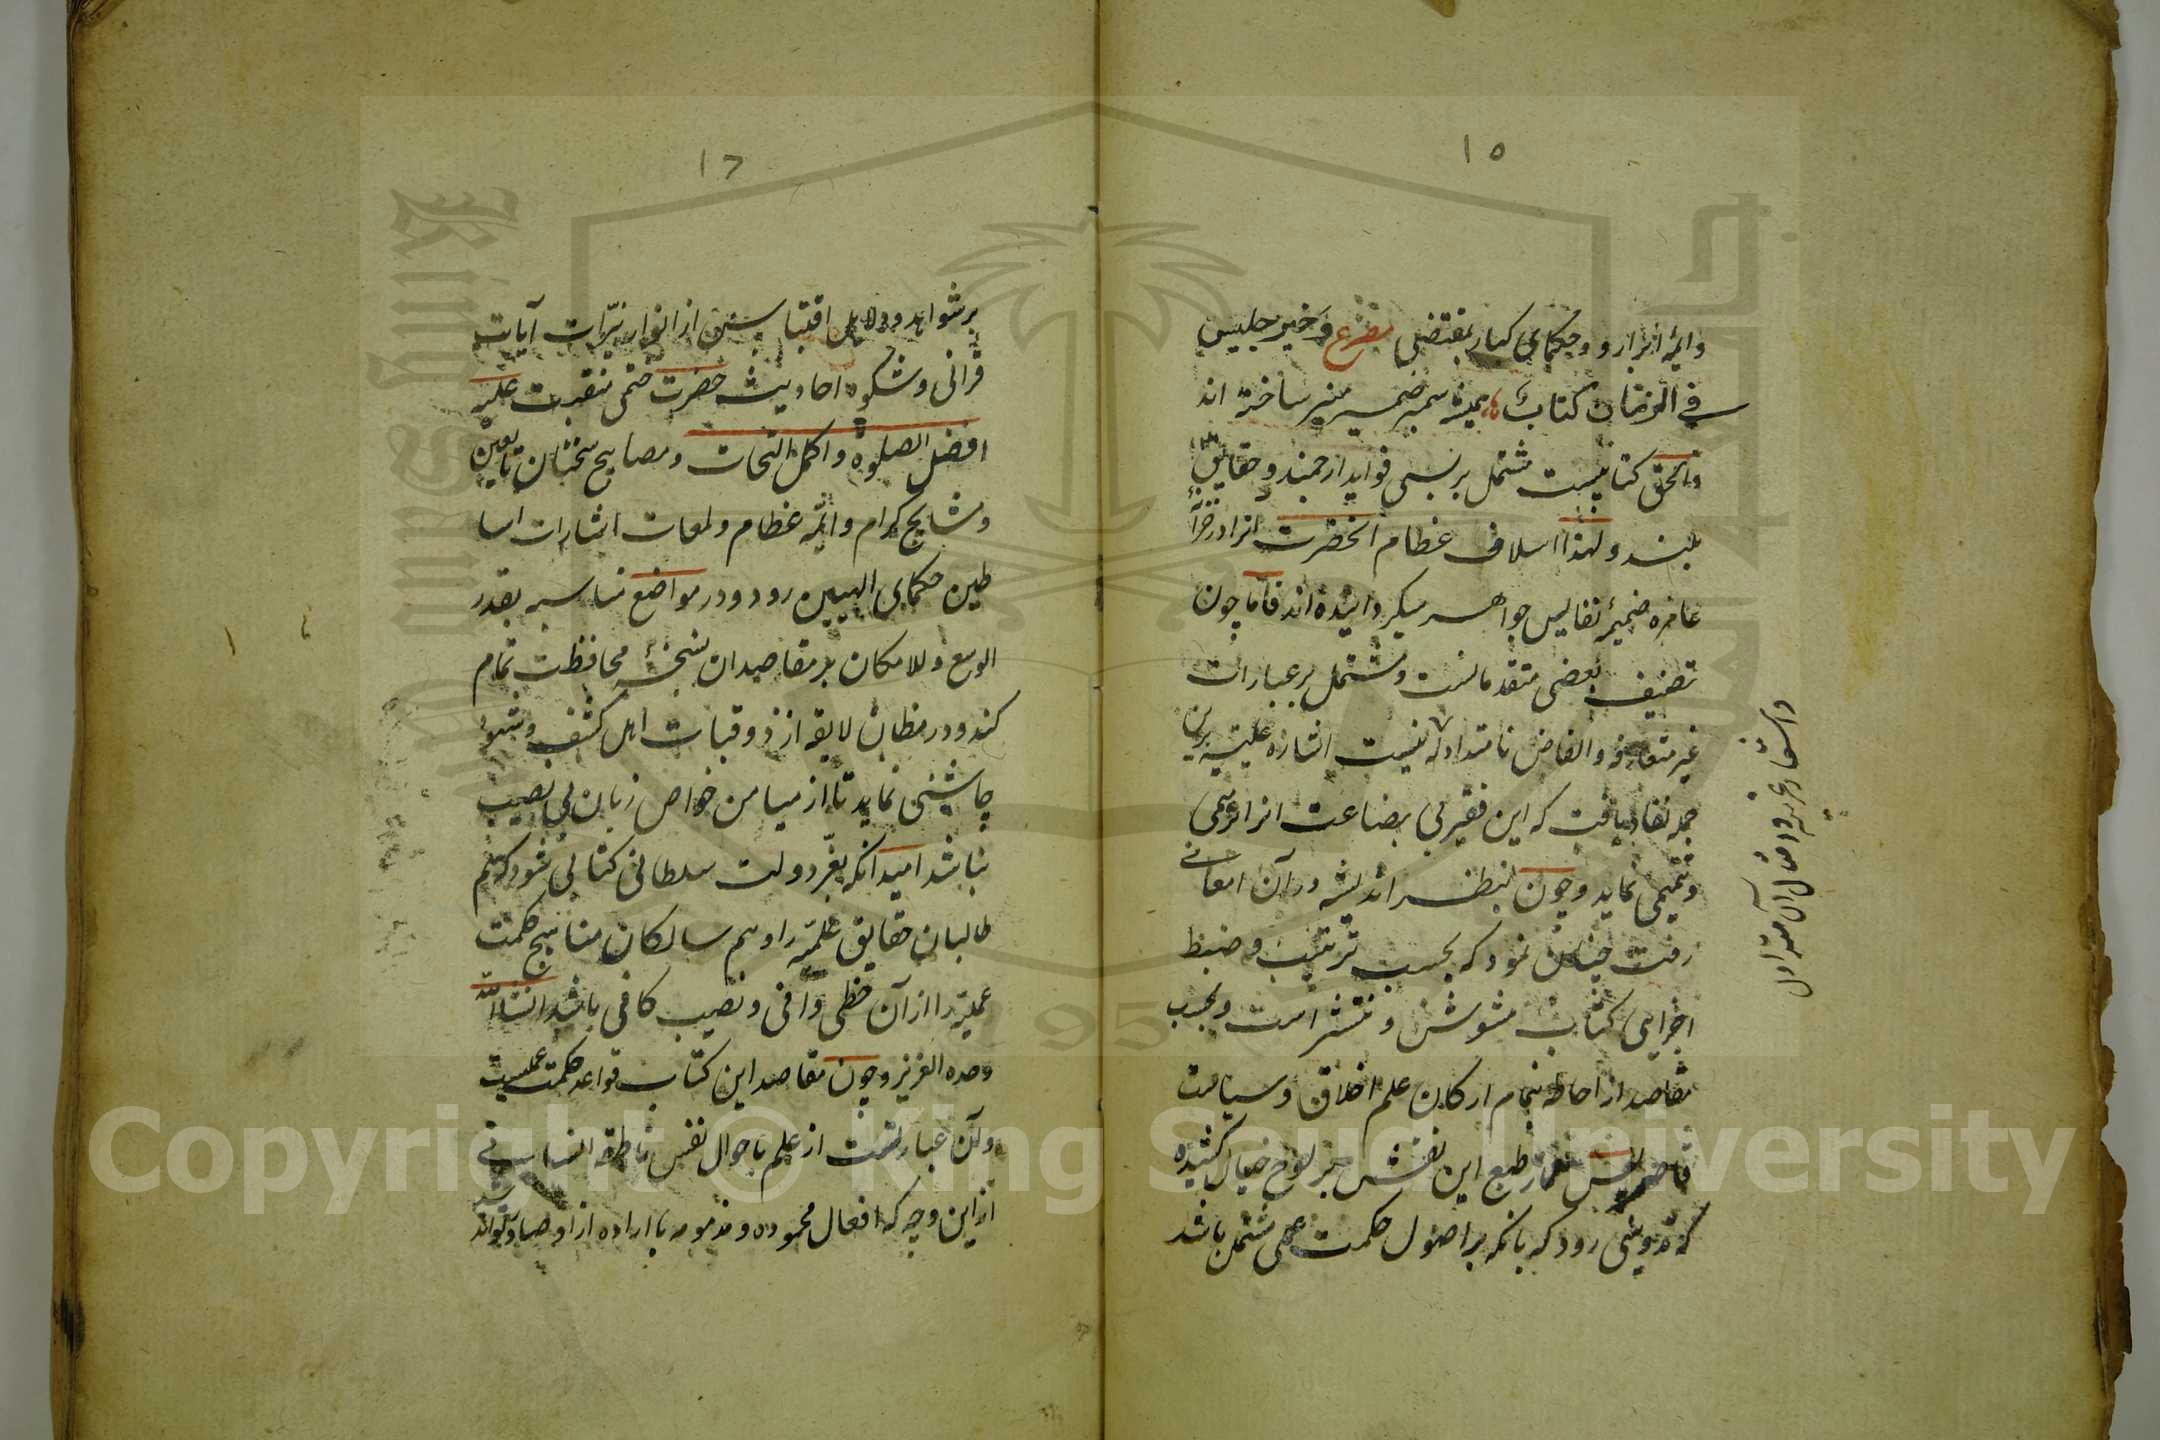 ١٥
وائمه ابرار و حكماى كبار بمقتضى مصرع وخير جليس
في الزمان كتاب هميشه سمير ضمير منير ساخته اند
والحق كتابيست مشتمل بر بسى فوايد ارجمند و حقايق
بلند ولهذا اسلاف عظام آنحضرت انرا در خزانه
عامره ضميمهٔ نفايس جواهر ميكردانيده اند فاما چون
تصنيف بعضى متقدمانست و مشتمل بر عبارات
غير متعارفه و الفاظ نا متداوله نيست اشاره عليه برين
جمله نفاذ يافت كه اين فقير بى بضاعت انرا ترسمى
و تتميمى نمايد و چون بنظر انديشه در آن امعانى
رفت چنان نمود كه بحسب ترتيب و ضبط
اجزاى كتاب مشوش و منتشر است و بحسب
مقاصد از احاطه بتمام اركان علم اخلاق و سياست
قاصر پس معمار طبع اين نقش بر لوح خيال كشيده
كه تدوينى رود كه بانكه بر اصول حكمت عملى مشتمل باشد
١٦
بر شواهد و دلايل اقتباسش از انوار نيّرات آيات
قرانى و مشكوة احاديث حضرت ختمى منقبت عليه
افضل الصلوة و اكمل التحيات و مصابيح سخنان تابعين
و مشايخ كرام و ائمّه عظام و لمعات اشارات اسا
طين حكماى الهيين رود و در مواضع مناسبه بقدر
الوسع و الامكان بر مقاصد ان نسخه محافظت تمام
كند و در مظان لايقه از ذوقيات اهل كشف و شهود
چاشنى نمايد تا از ميامن خواص زبان بى نصيب
نباشد اميد انكه بفرّ دولت سلطانى كتابى شود كه هم
طالبان حقايق علميّه را و هم سالكان مناهج حكمت
عمليّه را از آن حظى وافى و نصيب كافى باشد انشا الله
وحده العزيز و چون مقاصد اين كتاب قواعد حكمت عمليست
و آن عبارتست از علم باحوال نفس ناطقه انسانى
از اين وجه كه افعال محموده و مذمومه با اراده از او صادر تواند